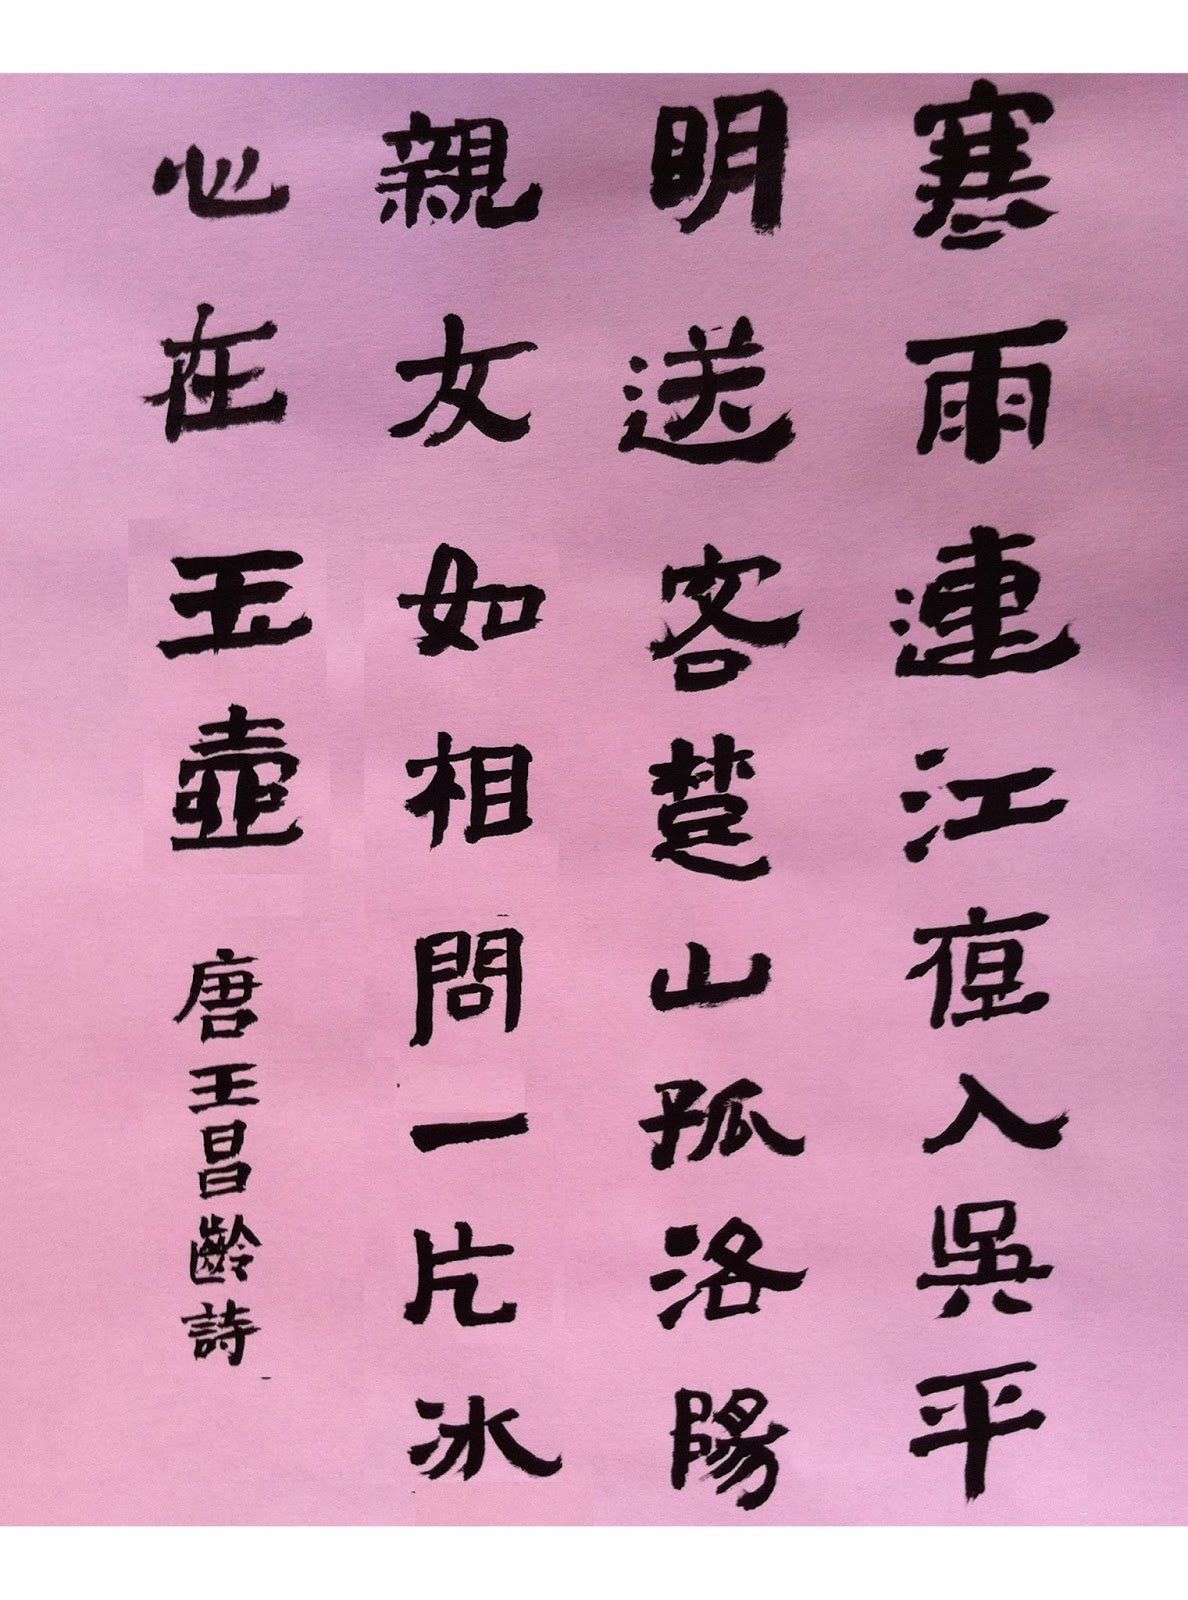 寒雨連江亱入吳平
明送客楚山孤洛陽
親友如相問一片冰
心在玉壺 唐王昌齡詩